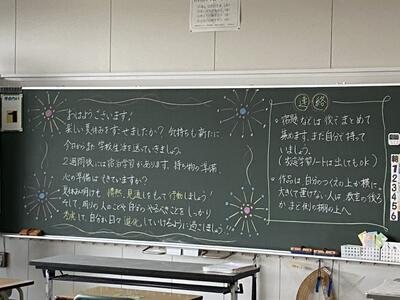 おはようございます!
楽しい夏休みをすごせましたか? 気持ちも新たに
今日からまた学校生活を送っていきましょう。
2週間後には宿泊学習があります。持ち物の準備、
心の準備はできていますか?
夏休み明けも 見通しをもって行動しましょう!
そして、周りの人のことや自分のやるべきことをしっかり
考えて、自分から進化していけるように過ごしましょう!!
連絡
。宿題などは後でまとめて
集めます。まだ自分で持って
いましょう。
(は出してもok)
。作品は、自分のつくえの上か横に。
大きくて置けない人は、教室の後ろ
か、まど側の棚の上へ
朝
1
2
3
4
5
6